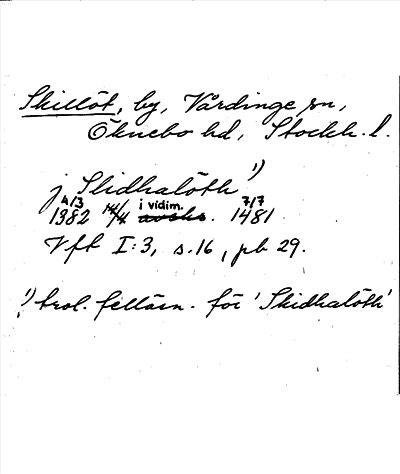 Skillöt, by, Vårdinge sn,
Öknebo hd, Stockh. l.
j Slidhalöth 1)
4/3 i vidim. 7/7
1382 14/4 avskr. 1481
Vft I:3, s. 16, pb 29.
1) trol. felläsn. för 'Skidhalöth'